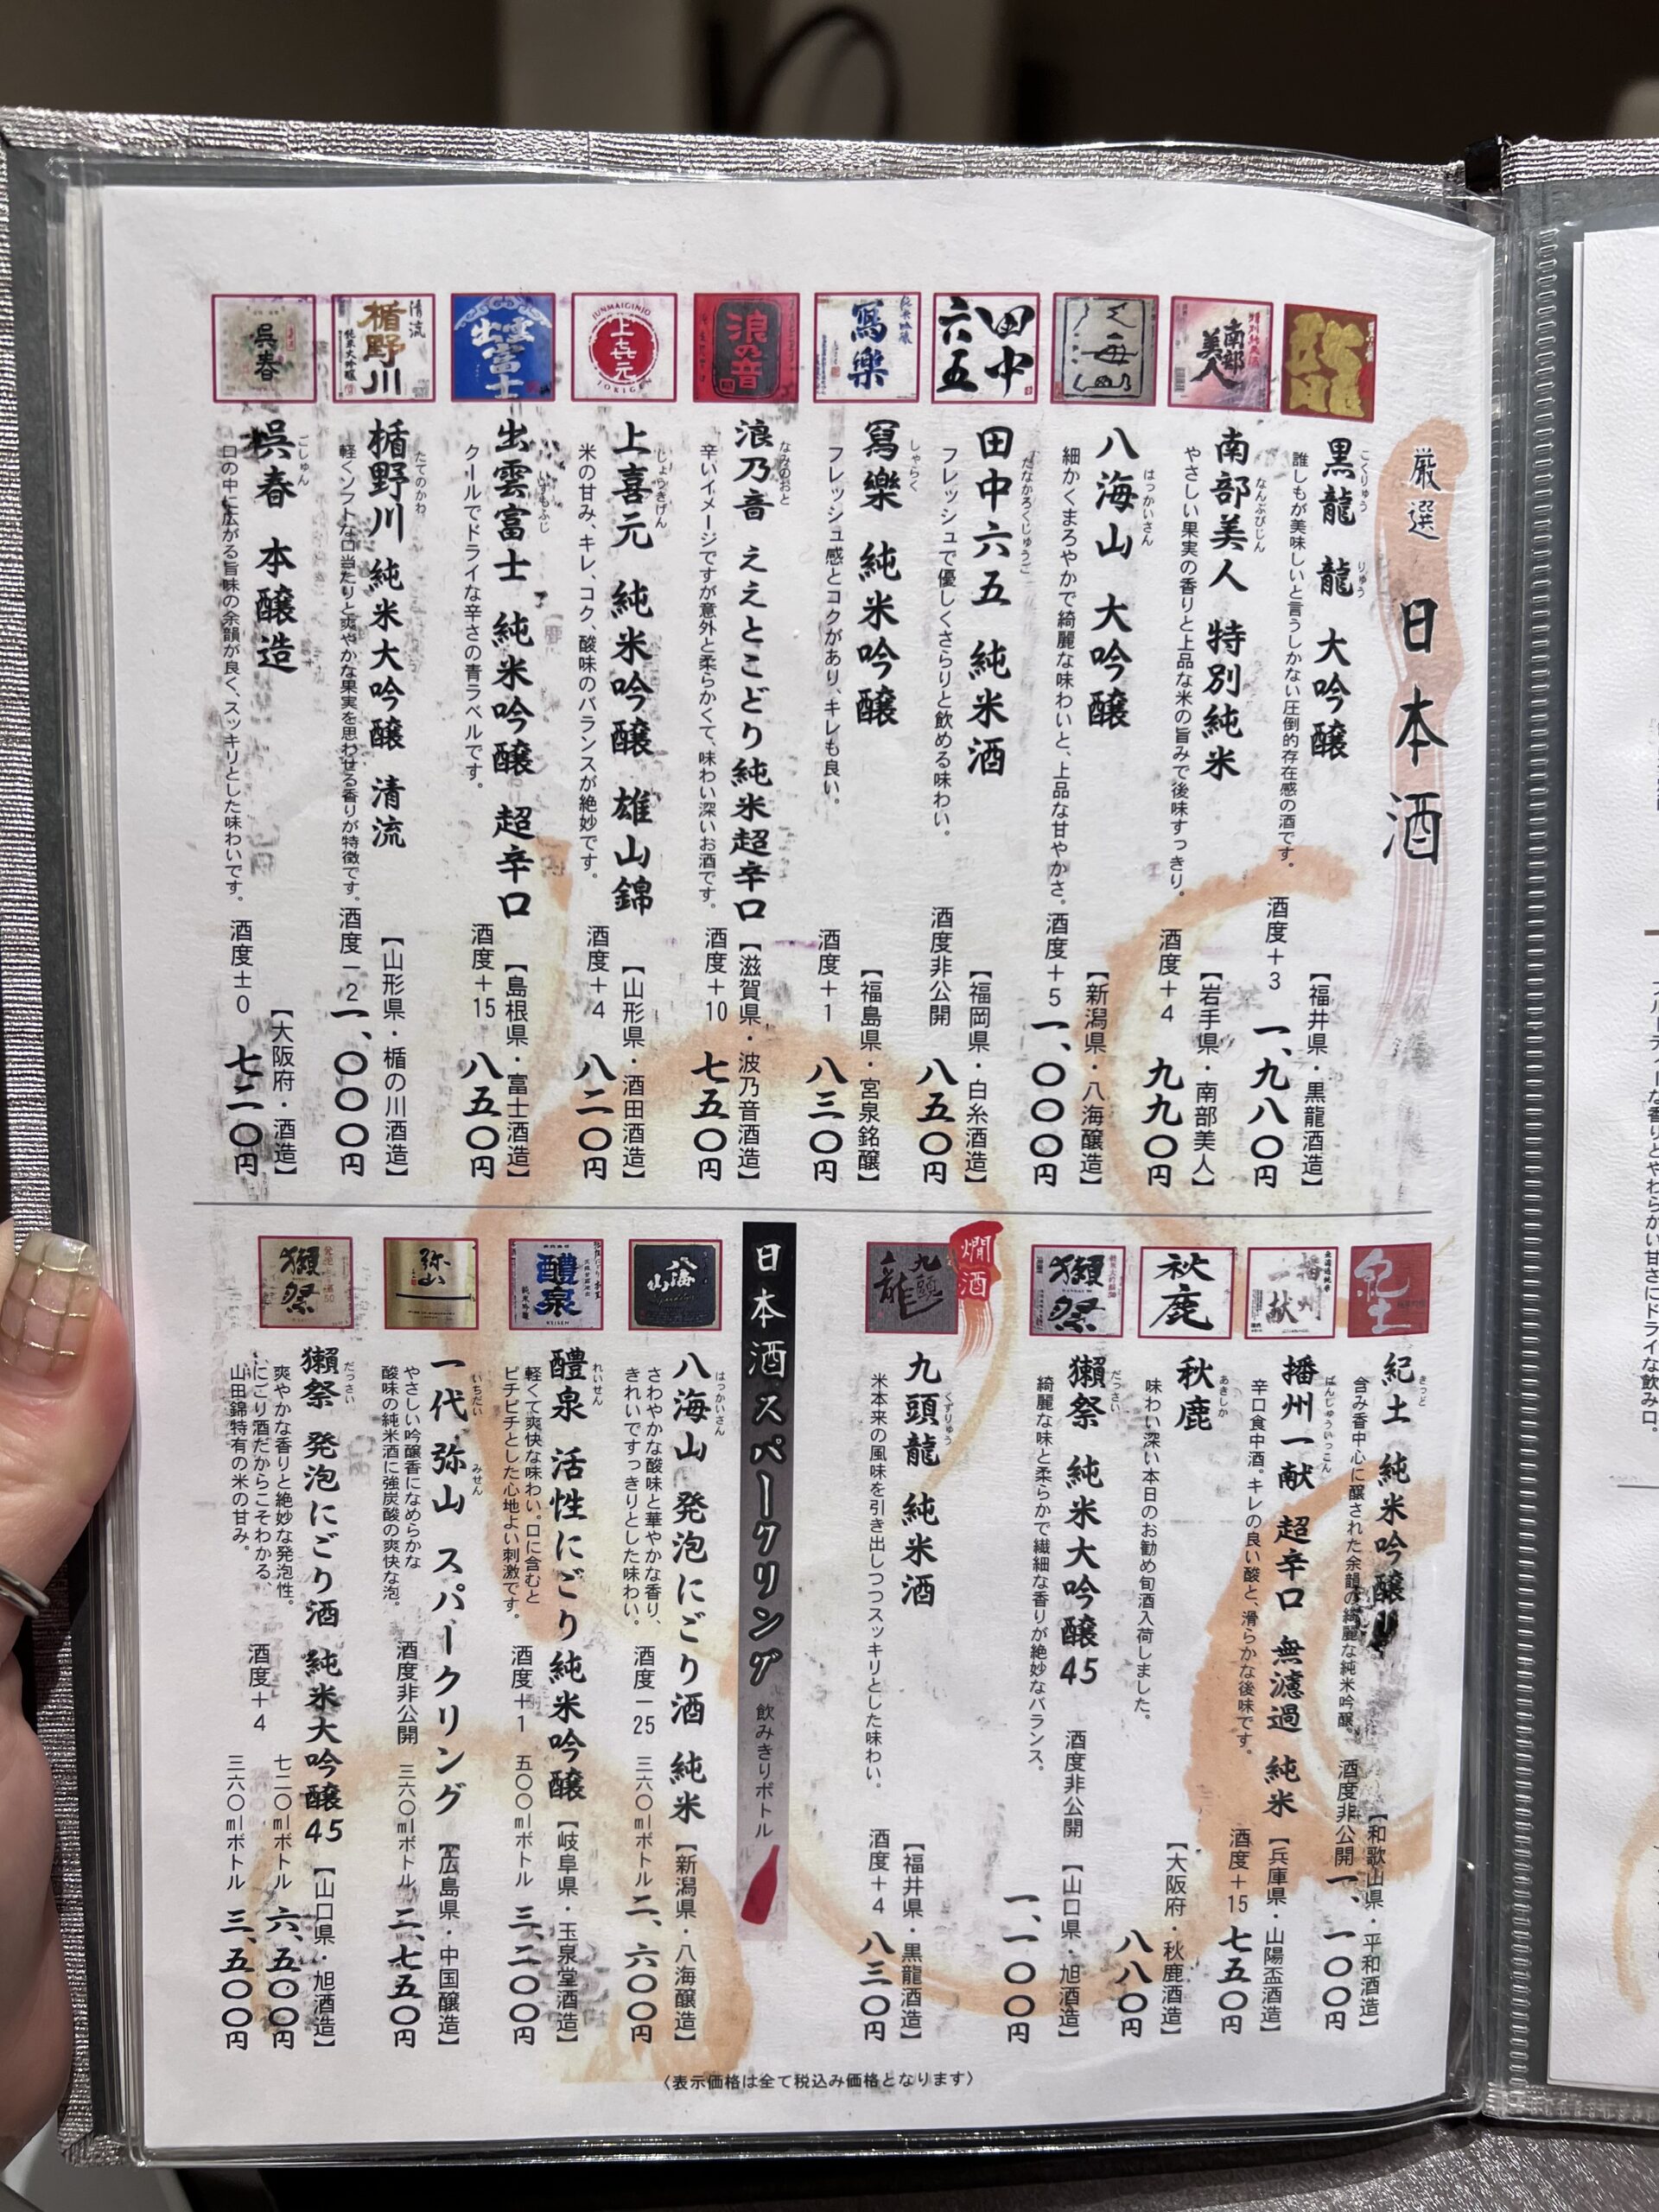 厳選 日本酒
黒龍 龍 大吟醸
こくりゅう りゅう
誰しもが美味しいと言うしかない圧倒的存在感の酒です。
酒度+3
【福井県・黒龍酒造】
一、九八〇円
南部美人 特別純米
なんぶびじん
やさしい果実の香りと上品な米の旨みで後味すっきり。
酒度+4
【岩手県・南部美人】
九九〇円
八海山 大吟醸
はっかいさん
細かくまろやかで綺麗な味わいと、上品な甘やかさ。
酒度+5
【新潟県・八海醸造】
一、〇〇〇円
田中六五 純米酒
たなかろくじゅうご
フレッシュで優しくさらりと飲める味わい。
酒度非公開
【福岡県・白糸酒造】
八五〇円
冩樂 純米吟醸
しゃらく
フレッシュ感とコクがあり、キレも良い。
酒度+1
【福島県・宮泉銘醸】
八三〇円
浪乃音 ええとこどり 純米超辛口
なみのおと
辛いイメージですが意外と柔らかくて、味わい深いお酒です。
酒度+10
【滋賀県・波乃音酒造】
七五〇円
上喜元 純米吟醸 雄山錦
じょうきげん
米の甘み、キレ、コク、酸味のバランスが絶妙です。
酒度+4
【山形県・酒田酒造】
八二〇円
出雲富士 純米吟醸 超辛口
いずもふじ
クールでドライな辛さの青ラベルです。
酒度+15
【島根県・富士酒造】
八五〇円
楯野川 純米大吟醸 清流
たてのかわ
軽くソフトな口当たりと爽やかな果実を思わせる香りが特徴です。
酒度-2
【山形県・楯の川酒造】
一、〇〇〇円
呉春 本醸造
ごしゅん
口の中に広がる旨味の余韻が良く、スッキリとした味わいです。
酒度±0
【大阪府・酒造】
七二〇円
紀土 純米吟醸
きっど
含み香中心に醸された余韻の綺麗な純米吟醸。
酒度非公開
【和歌山県・平和酒造】
一、一〇〇円
播州一献 超辛口 無濾過 純米
ばんしゅういっこん
辛口食中酒。キレの良い酸と、滑らかな後味です。
酒度+15
【兵庫県・山陽盃酒造】
七五〇円
秋鹿
あきしか
味わい深い本日のお勧め旬酒入荷しました。
【大阪府・秋鹿酒造】
八八〇円
獺祭 純米大吟醸45
だっさい
綺麗な味と柔らかで繊細な香りが絶妙なバランス。
酒度非公開
【山口県・旭酒造】
一、一〇〇円
燗酒
九頭龍 純米酒
くずりゅう
米本来の風味を引き出しつつスッキリとした味わい。
酒度+4
【福井県・黒龍酒造】
八三〇円
日本酒スパークリング 飲みきりボトル
八海山 発泡にごり酒 純米
はっかいさん
さわやかな酸味と華やかな香り、
きれいですっきりとした味わい。
酒度-25
【新潟県・八海醸造】
三六〇mlボトル 二、六〇〇円
醴泉 活性にごり 純米吟醸
れいせん
軽くて爽快な味わい。口に含むと
ピチピチとした心地よい刺激です。
酒度+1
【岐阜県・玉泉堂酒造】
五〇〇mlボトル 三、二〇〇円
一代 弥山 スパークリング
いちだい みせん
やさしい吟醸香になめらかな
酸味の純米酒に強炭酸の爽快な泡。
酒度非公開
【広島県・中国醸造】
三六〇mlボトル 二、七五〇円
獺祭 発泡にごり酒 純米大吟醸45
だっさい
爽やかな香りと絶妙な発泡性。
にごり酒だからこそわかる、
山田錦特有の米の甘み。
酒度+4
【山口県・旭酒造】
七二〇mlボトル 六、五〇〇円
三六〇mlボトル 三、五〇〇円
〈表示価格は全て税込み価格となります〉